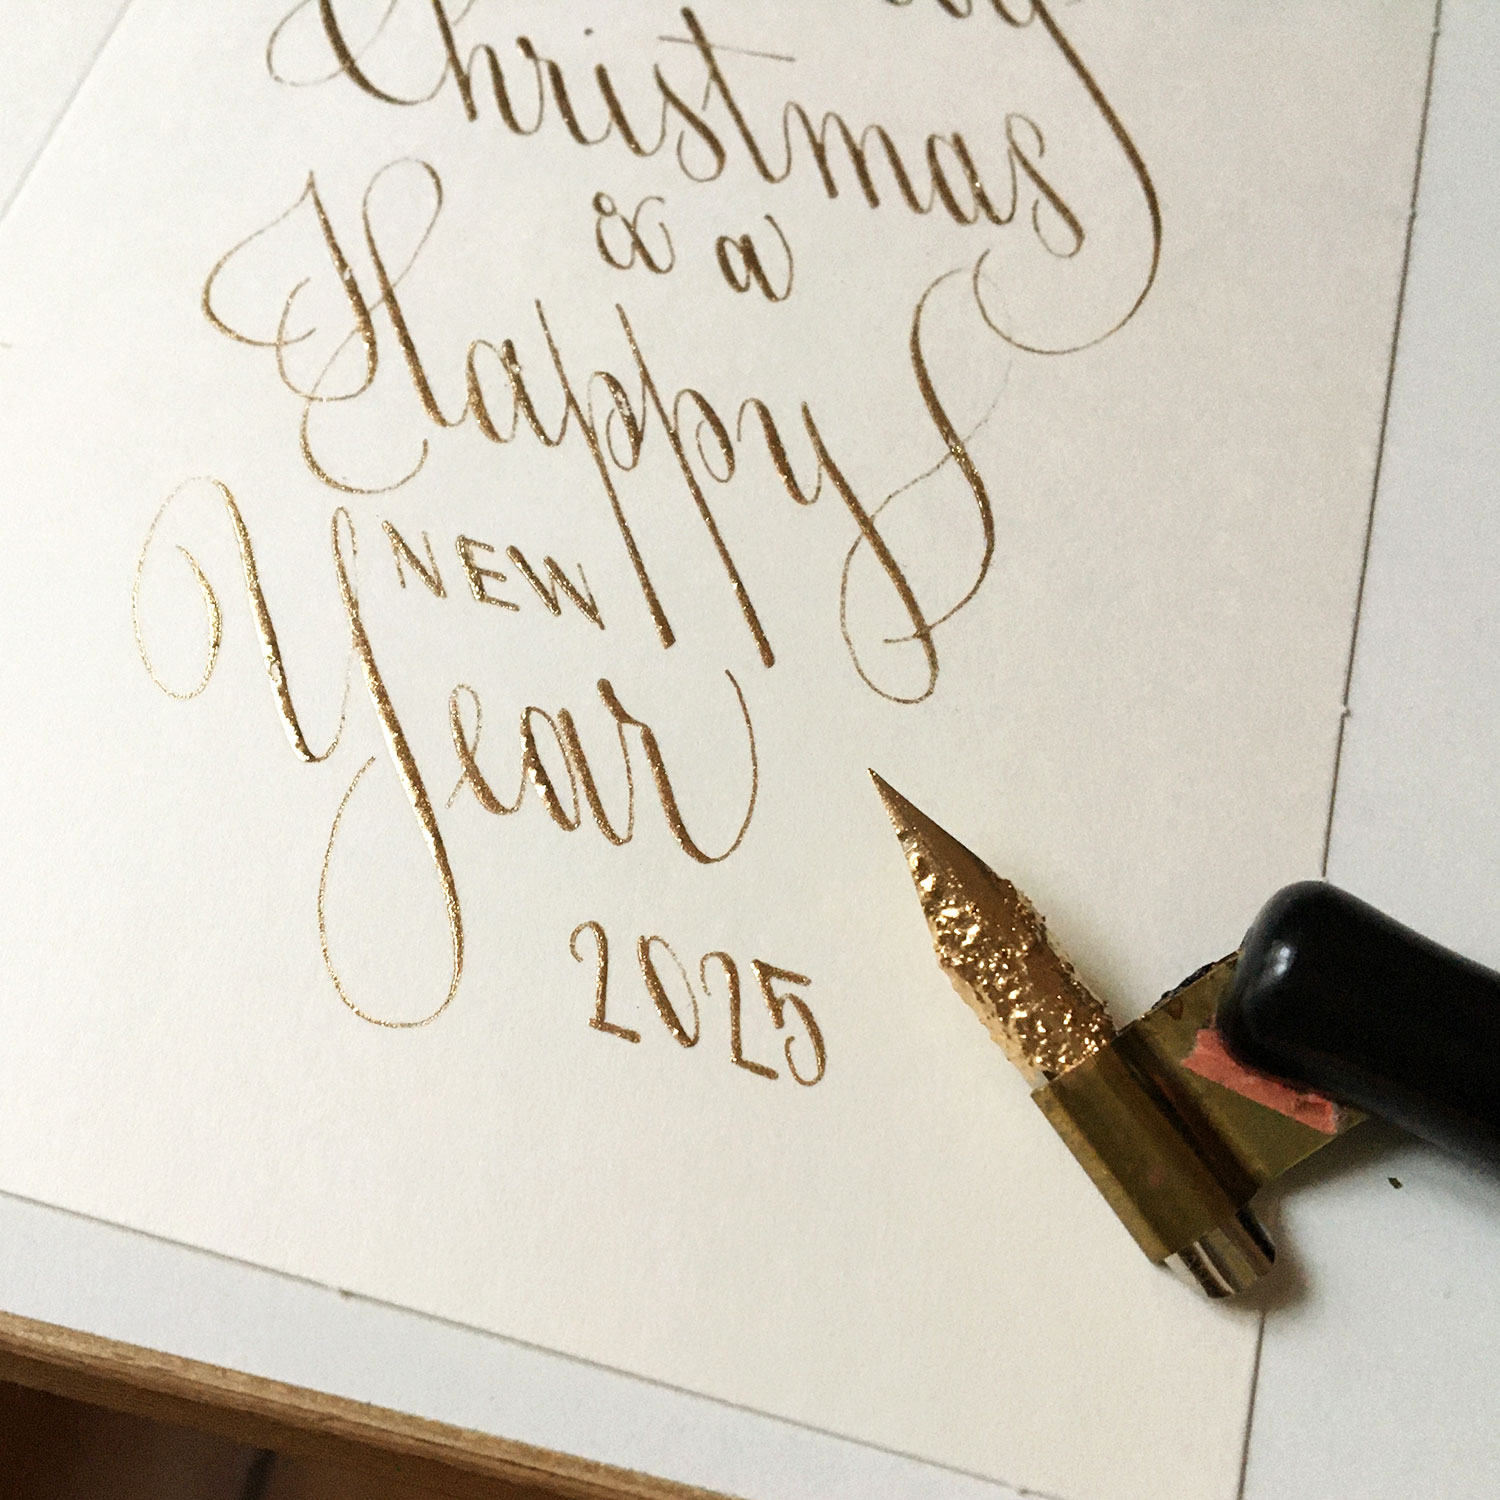 Christmas
& a
Happy
NEW
Year
2025